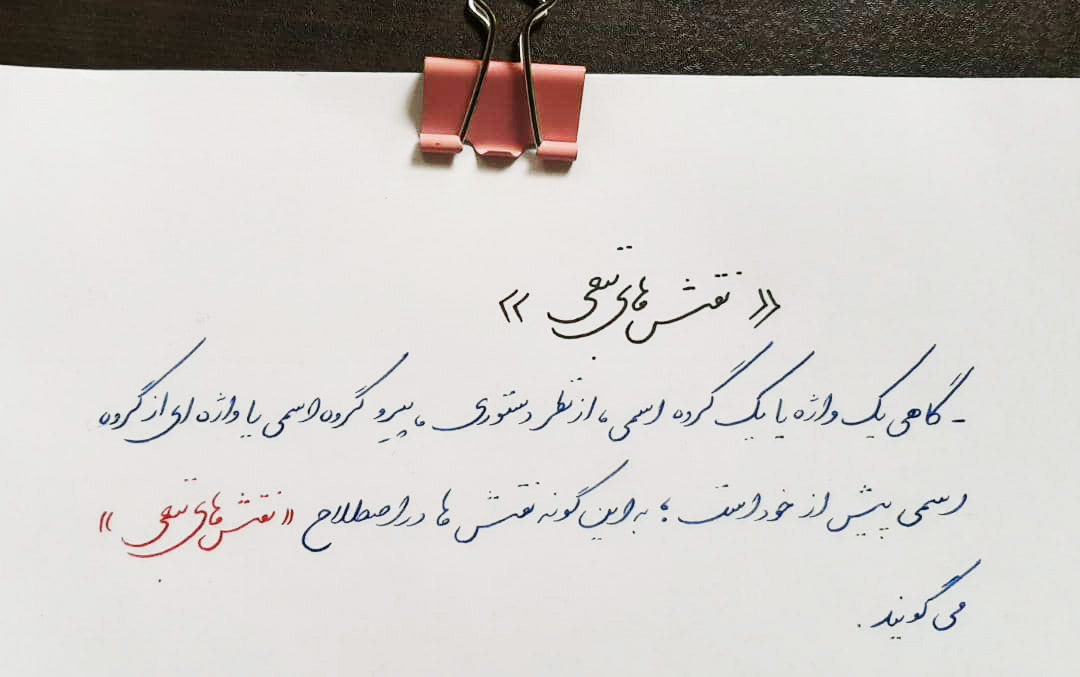 « نقش های تبعی »
- گاهی یک واژه یا یک گروه اسمی ، از نظر دستوری ، پیرو گروه اسمی یا واژه ای از گروه
اسمی پیش از خود است ؛ به این گونه نقش ها در اصطلاح « نقش های تبعی »
می گویند .